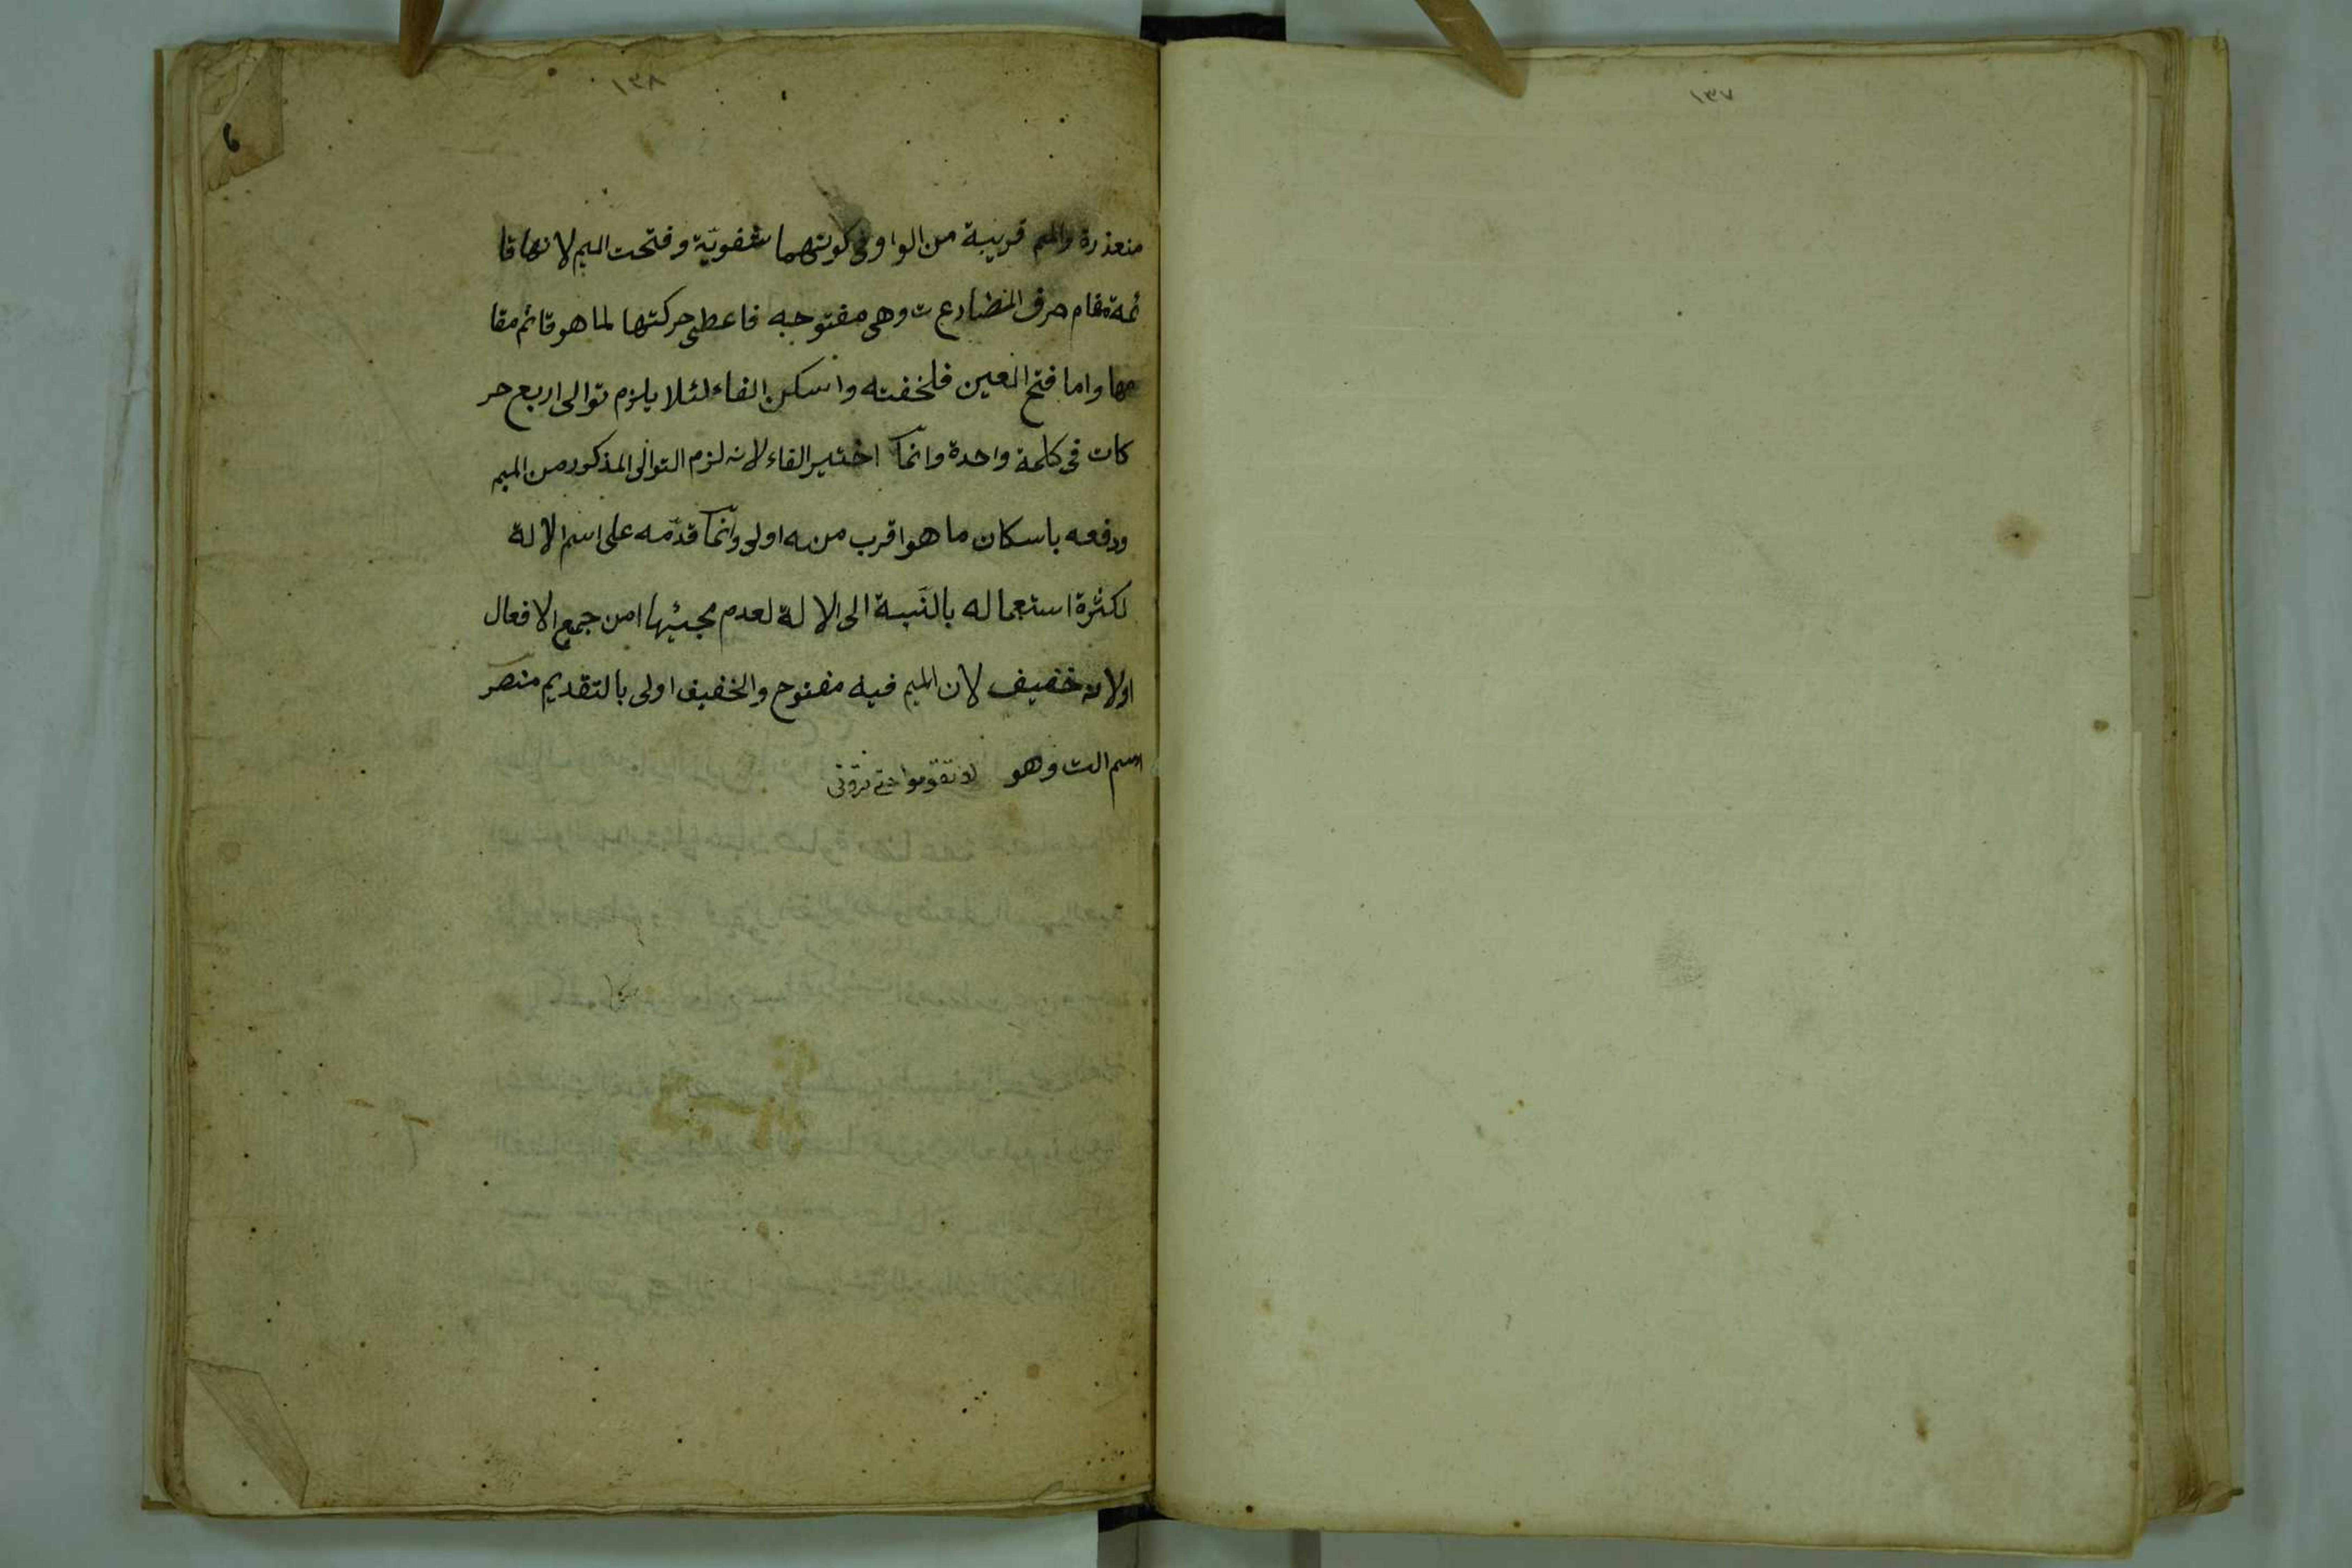 ١٣٧
١٣٨
متعذرة والميم قريبة من الواو فى كونهما شفويّة وفتحت الميم لانها قا
ئمة مقام حرف المضارعت وهى مفتوحه فاعطى حركتها لما هو قائم مقا
مها واما فتح العين فلخفته واسكن الفاء لئلا يلزم توالى اربع حر
كات فى كلمة واحدة وانّما اختير الفاء لانه لزم التوالى المذكور من الميم
ودفعه باسكان ما هو اقرب منه اولى وانّما قدّمه على اسم الالة
لكثرة استعماله بالنسبة الى الالة لعدم مجئيها من جمع الافعال
اولانه خفيف لان الميم فيه مفتوح والخفيف اولى بالتقديم
اسم الت وهو لا تقوموا حتى ترونى